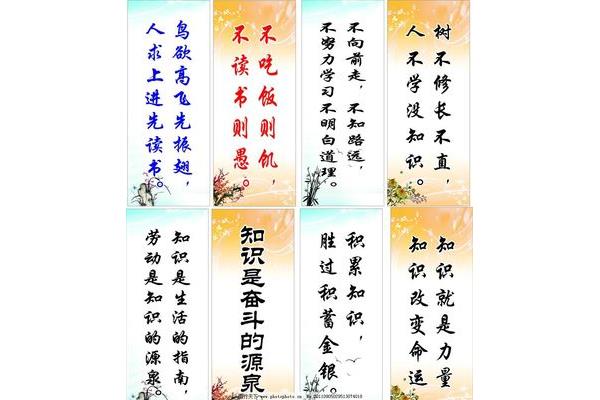 鸟欲高飞先振翅，
人求上进先读书。
不吃饭则饥，
不读书则愚。
不向前走，不知路远，
不努力学习不明白道理。
树不修长不直，
人不学没知识。
知识是生活的指南，
劳动是知识的源泉。
知识是奋斗的源泉
积累知识，
胜过积蓄金银。
知识就是力量
知识改变命运